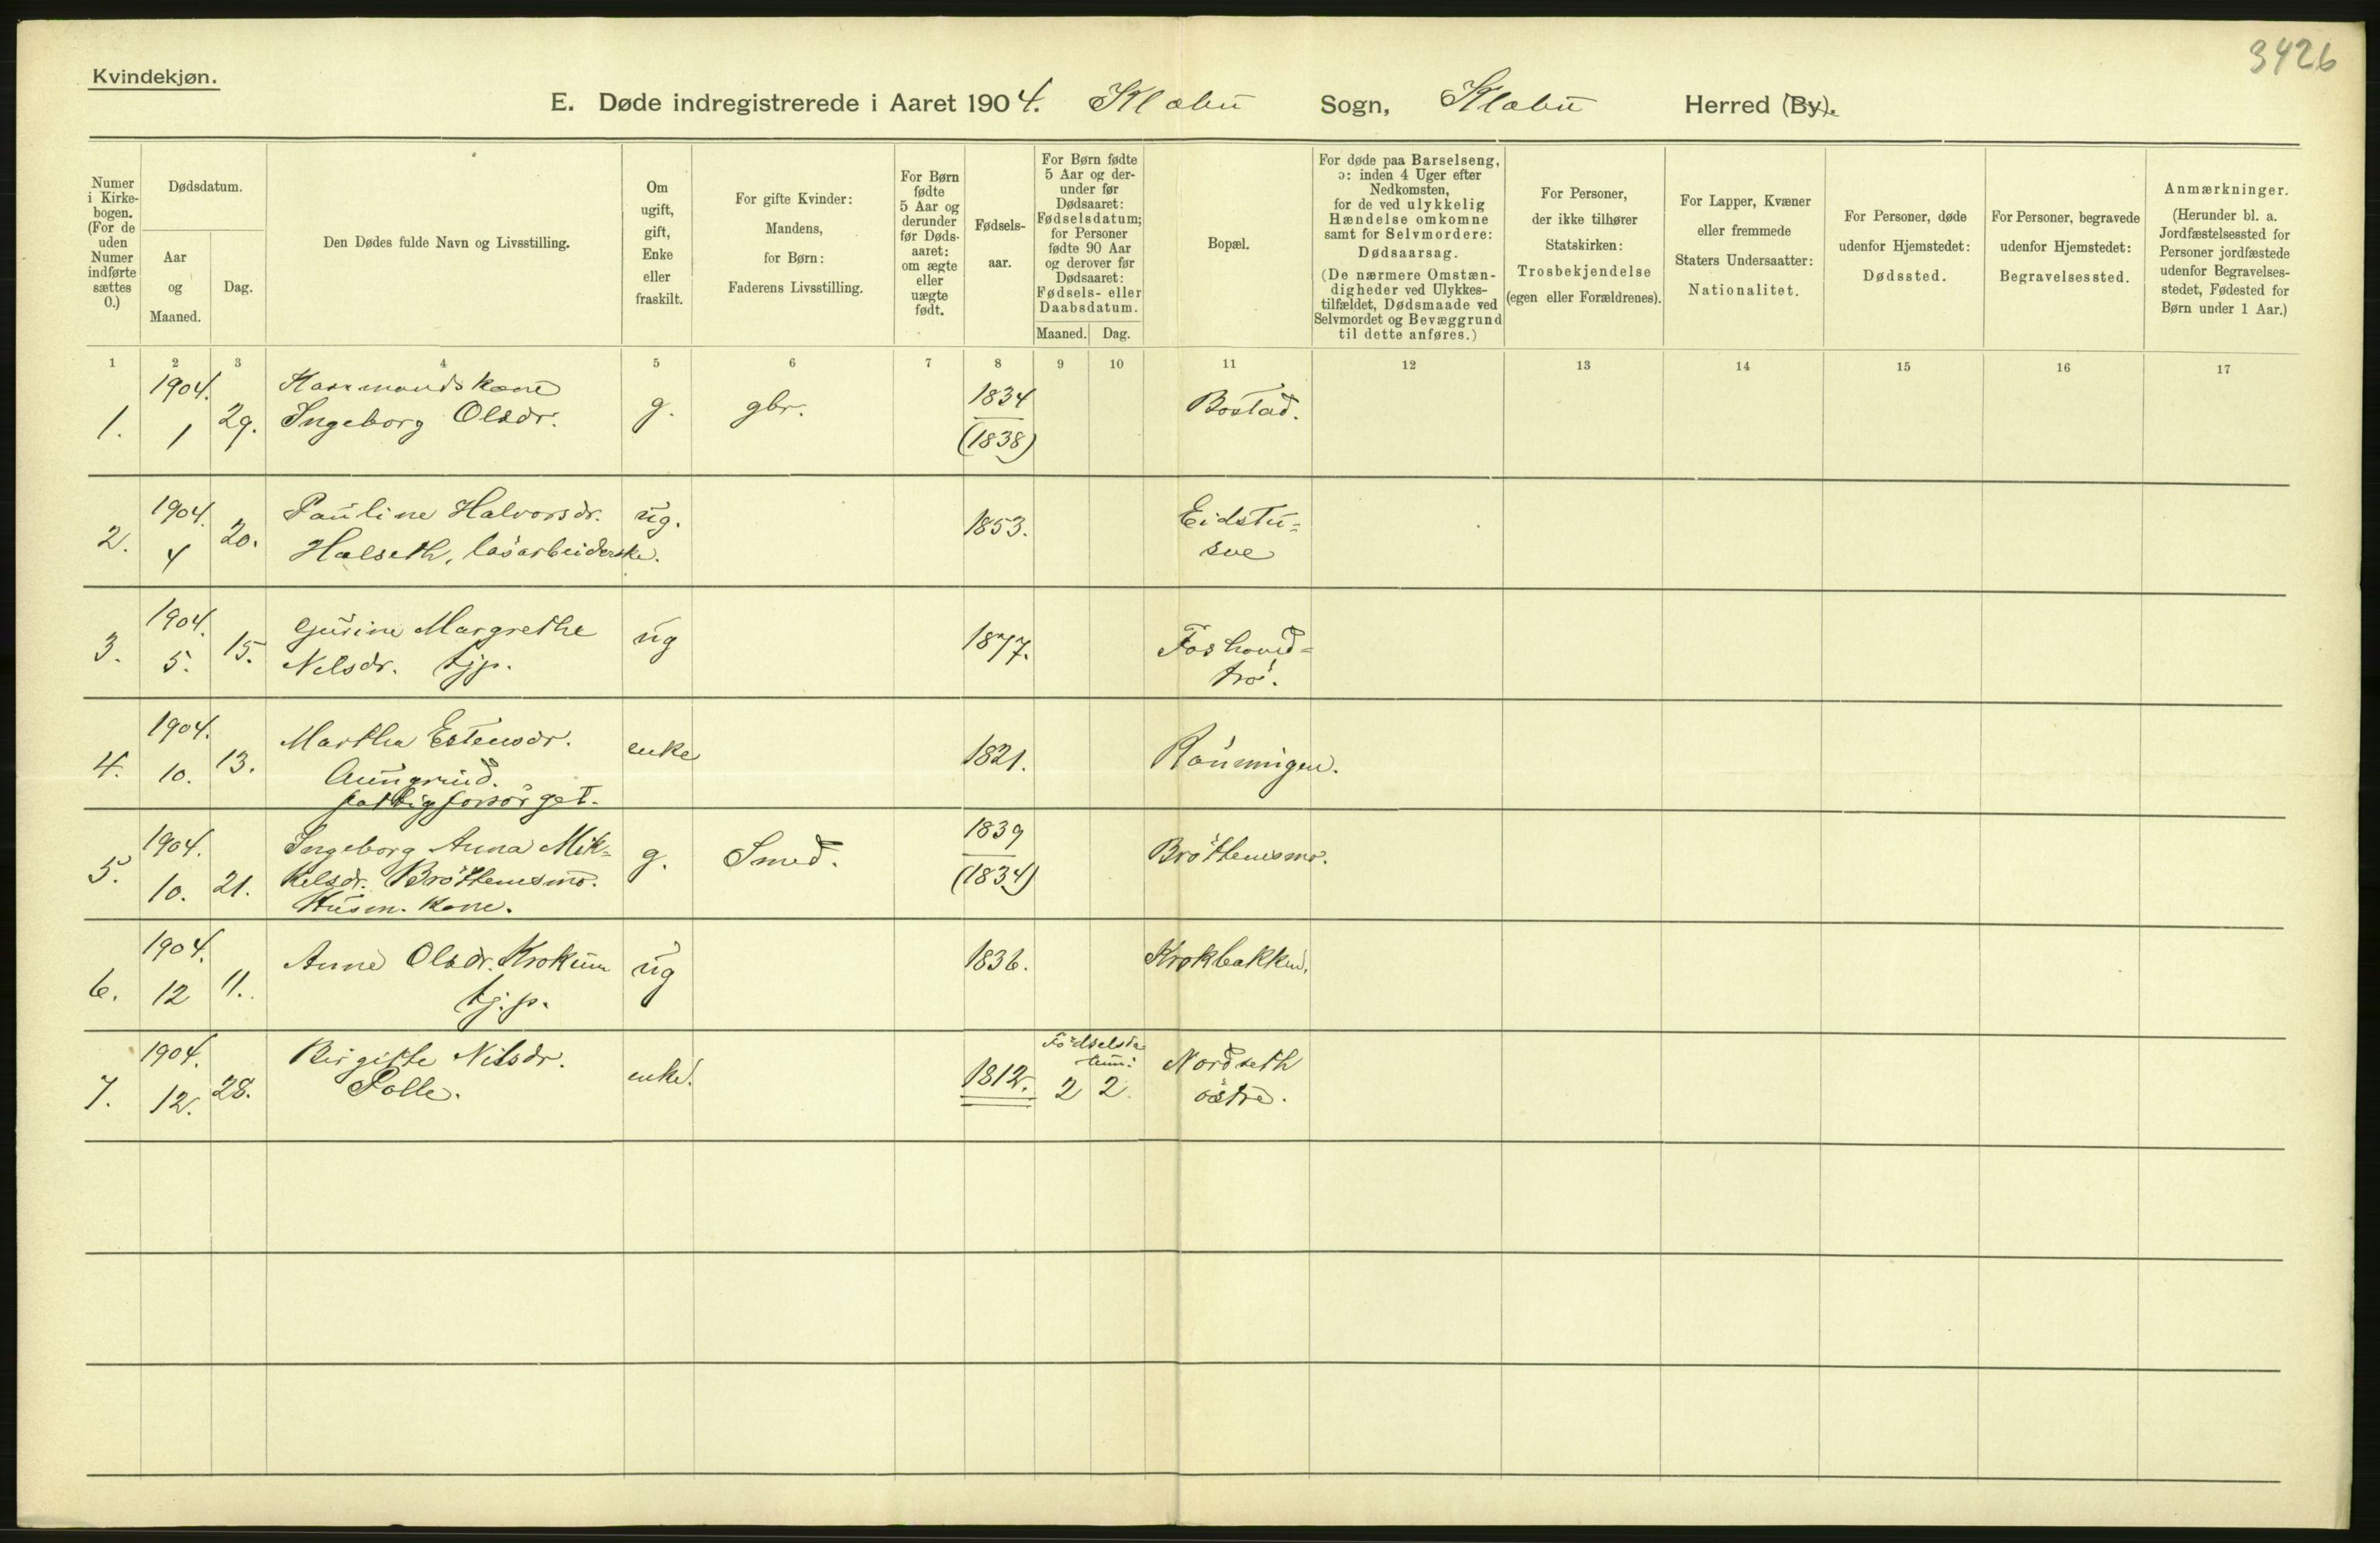 3426
Kvindekjøn.
E. Døde indregistrerede i Aaret 1904. Klæbu Sogn, Klæbu Herred (By).
Numer i Kirke-bogen. (For de uden Numer indførte sættes 0.)
Dødsdatum.
Aar og Maaned.
Dag.
Den Dødes fulde Navn og Livsstilling.
Om ugift, gift, Enke eller fraskilt.
For gifte Kvinder: Mandens, for Børn: Faderens Livsstilling.
For Børn fødte 5 Aar og derunder før Døds-aaret: om ægte eller uægte født.
Fødsels-aar.
For Børn fødte 5 Aar og der-under før Dødsaaret: Fødselsdatum; for Personer fødte 90 Aar og derover før Dødsaaret: Fødsels- eller Daabsdatum.
Maaned. Dag.
Bopæl.
For døde paa Barselseng, ɔ: inden 4 Uger efter Nedkomsten, for de ved ulykkelig Hændelse omkomne samt for Selvmordere: Dødsaarsag. (De nærmere Omstæn-digheder ved Ulykkes-tilfældet, Dødsmaade ved Selvmordet og Bevæggrund til dette anføres.)
For Personer, der ikke tilhører Statskirken: Trosbekjendelse (egen eller Forældrenes).
For Lapper, Kvæner eller fremmede Staters Undersaatter: Nationalitet.
For Personer, døde udenfor Hjemstedet: Dødssted.
For Personer, begravede udenfor Hjemstedet: Begravelsessted.
Anmærkninger. (Herunder bl. a. Jordfæstelsessted for Personer jordfæstede udenfor Begravelses-stedet, Fødested for Børn under 1 Aar.)
1 2 3 4 5 6 7 8 9 10 11 12 13 14 15 16 17
1. 1904. 1 29. Kaarmandskone
Ingeborg Olsdr. g. gbr. 1834 (1838) Bostad.
2. 1904. 4 20. Pauline Halvorsdr. ug. 1853. Eidstu-
Halseth, løsarbeiderske. sve
3. 1904. 5. 15. Gurine Margrethe ug 1877. Foshoved-
Nilsdr. tjp. trø.
4. 1904. 10. 13. Martha Estensdr. enke 1821. Rønningen.
Aungrind.
fattigforsørget.
5. 1904. 10. 21. Ingeborg Anna Mik- g. Smed. 1839 (1834) Brøttemsmo.
kelsdr. Brøttemsmo.
Husm. kone.
6. 1904. 12 11. Anne Olsdr. Krokum ug 1836. Krokbakken.
tj.p.
7. 1904. 12. 28. Birgitte Nilsdr. enke. 1812. Fødselsda-
tum: 2 2. Nordseth
Solle. østre.